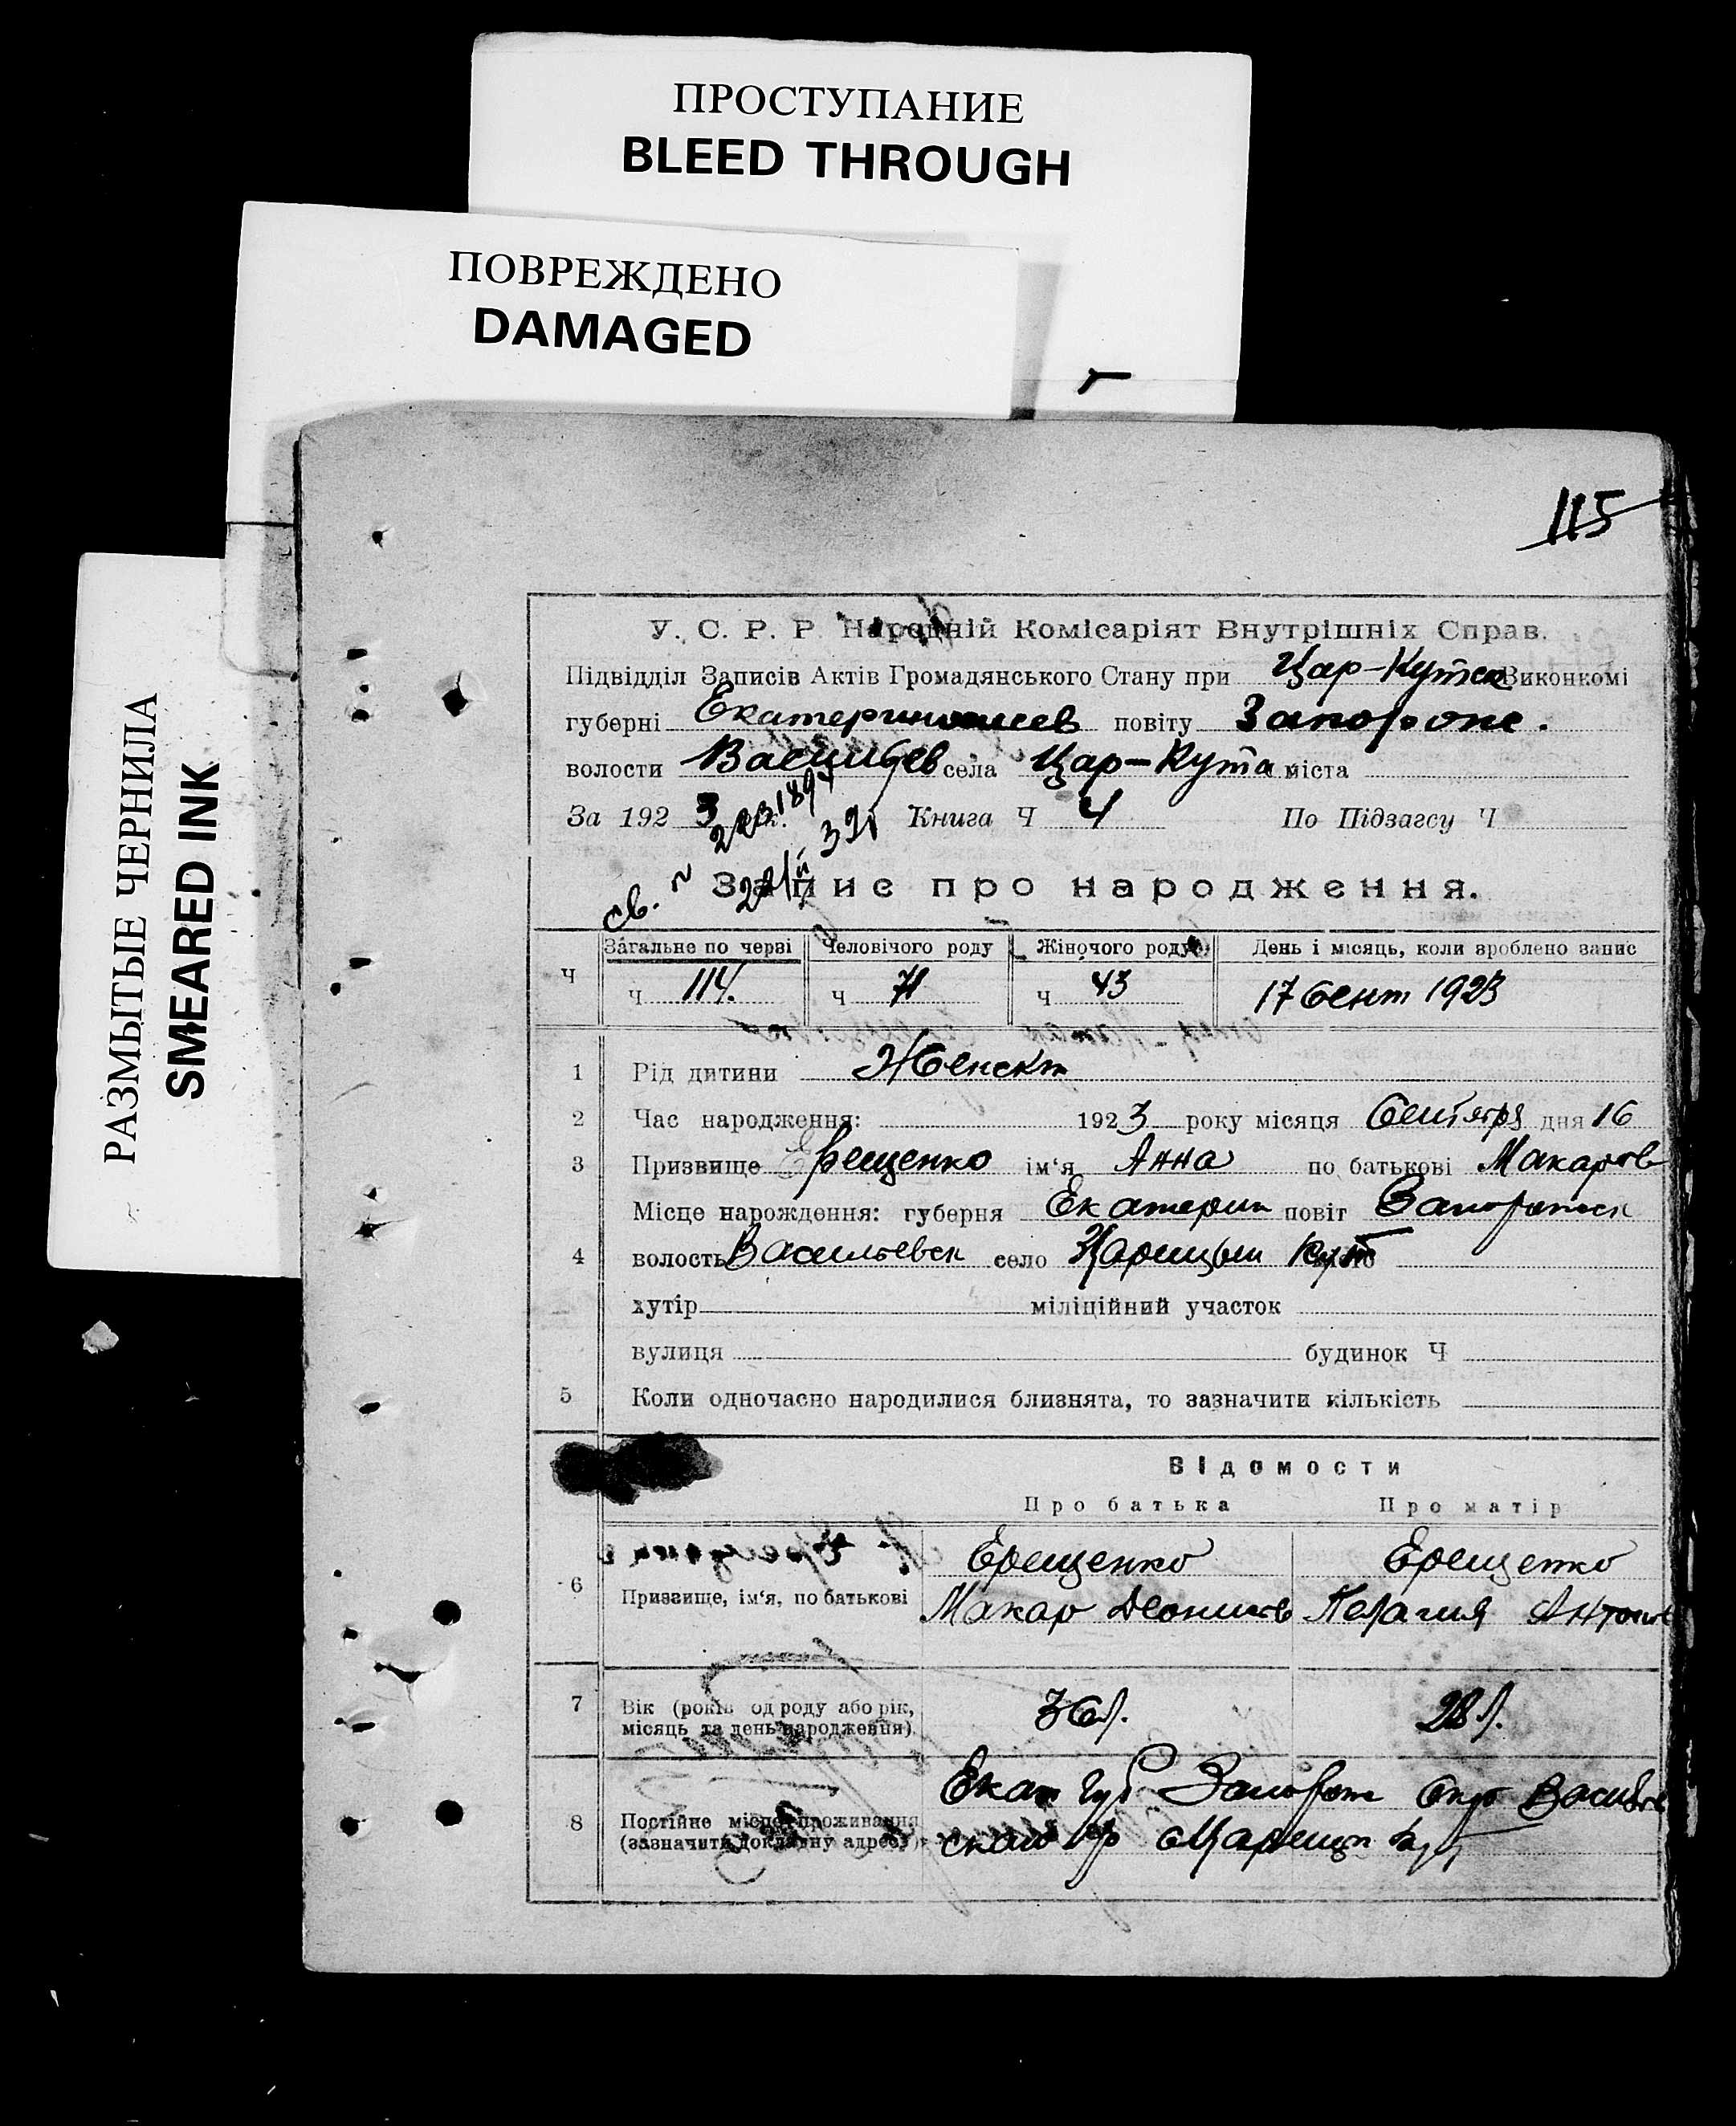 ПРОСТУПАНИЕ
BLEED THROUGH
ПОВРЕЖДЕНО
DAMAGED
РАЗМЫТЫЕ ЧЕРНИЛА
SMEARED INK
115
У. С. Р. Р. Народній Комісаріят Внутрішніх Справ.
Підвідділ Записів Актів Громадянського Стану при Цар-Кутск Виконкомі
губерні Екатеринослав повіту Запорож.
волости Васильев села Цар-Кута міста
За 1923 Книга Ч 4 По Підзагсу Ч
св. 
Запис про народження.
Загальне по черві Человічого роду Жіночого роду День і місяць, коли зроблено запис
Ч Ч 114. Ч 71 Ч 43 17 Сент 1923
1 Рід дитини Женск
2 Час народження: 1923 року місяця Сентября дня 16
3 Призвище Ерещенко ім‘я Анна по батькові Макаров
Місце нарождення: губерня Екатерин повіт Запорожск
4 волость Васильевск село Царицын Кут
хутір міліційний участок
вулиця будинок Ч
5 Коли одночасно народилися близнята, то зазначити кількість
Відомости
Про батька Про матір
Ерещенко Ерещенко
6 Призвище, ім‘я, по батькові Макар Пелагия Антонов
7 Вік (років од роду або рік, 36 л. 28 л.
місяць та день народження)
Екат губ Запорож Окр Васильев
8 Постійне місце проживання
(зазначити докладну адресу) ской Царицын Кут